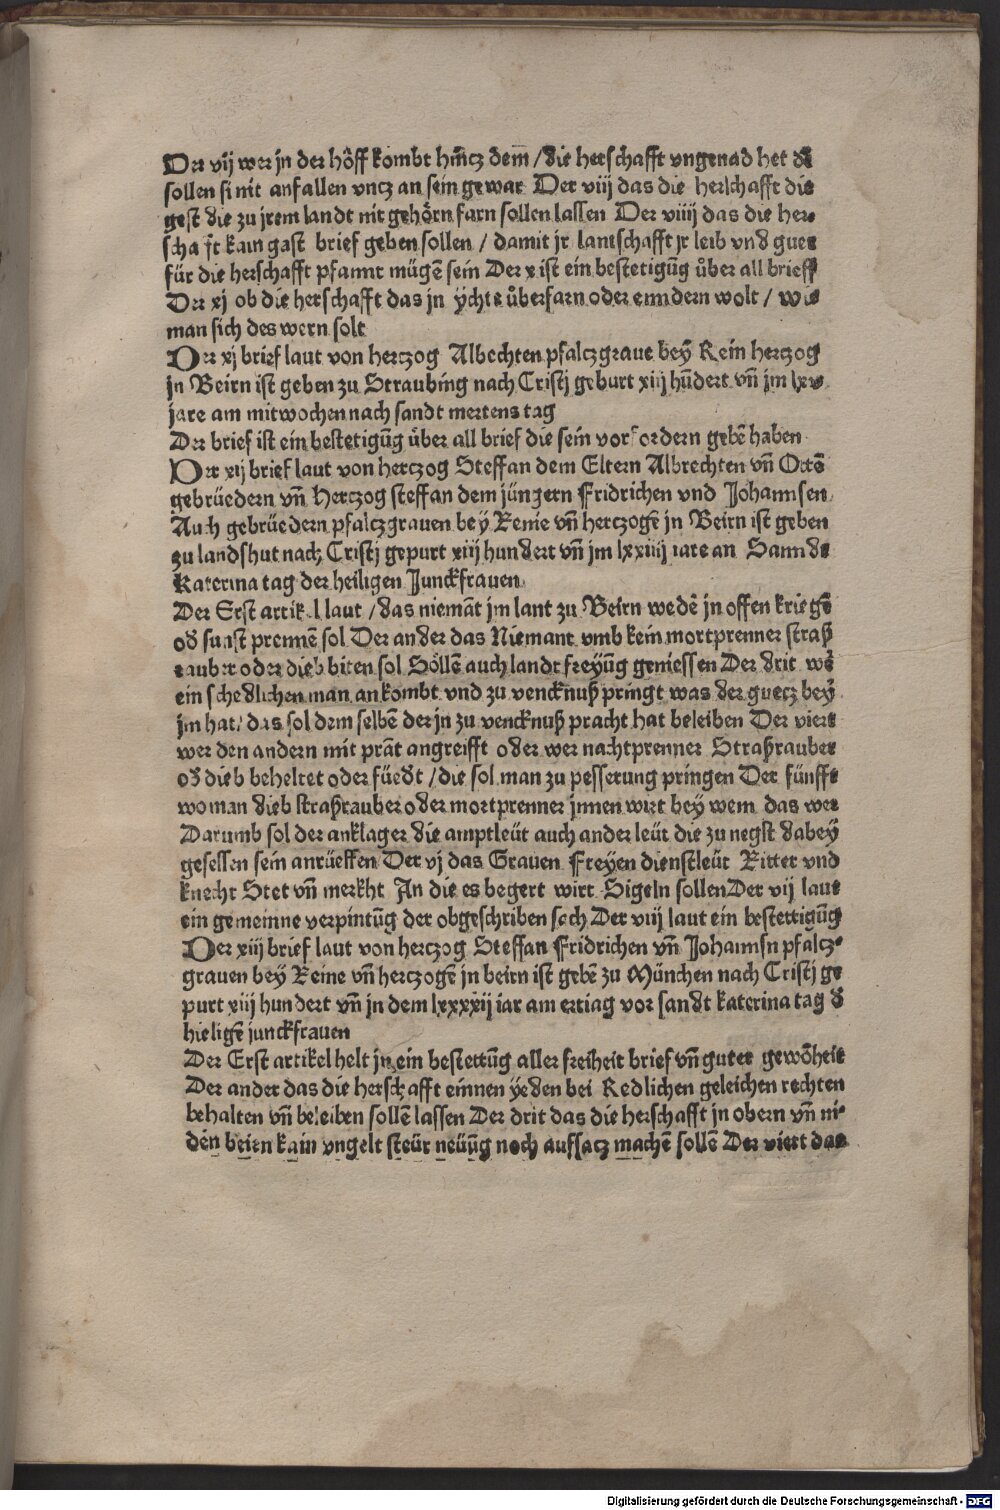 Der vij wer jn der höff kombt hintz dem̄ / die herschafft vngenad het dē
sollen si nit anfallen vncz an sein gewar Der viij das die herschafft die
gest die zu jrem landt nit gehörn farn sollen lassen Der viiij das die her-
schafft kain gast brief geben sollen / damit jr lantschafft jr leib vnd guet
für die herschafft pfannt mügē sein Der x ist ein bestetigūg ůber all brieff
Der xj ob die herschafft das jn ychte ůberfarn oder enndern wolt / wie
man sich des wern solt
Der xj brief laut von hertzog Albechten pfalczgraue bey Rein hertzog
jn Beirn ist geben zu Straubing nach Cristj geburt xiij hūdert vn̄ jm lxv
jare am mitwochen nach sandt mertens tag
Der brief ist ein bestetigūg ůber all brief die sein vorfordern gebē haben
Der xij brief laut von hertzog Steffan dem Eltern Albrechten vn̄ Ottē
gebrüedern vn̄ Hertzog steffan dem jüngern Fridrichen vnd Johannsen
Auch gebrüedern pfalczgrauen bey Reine vn̄ hertzogē jn Beirn ist geben
zu landshut nach Cristj gepurt xiij hundert vn̄ jm lxxiiij iare an Sannds
Katerina tag der heiligen Junckfrauen
Der Erst artikel laut / das niemāt jm lant zu Beirn wedē jn offen kriegē
od sunst prennē sol Der ander das Niemant vmb kein mortprenner straß
rauber oder dieb biten sol Söllē auch landt freyūg geniessen Der drit wē
ein schedlichen man ankombt vnd zu vencknuß pringt was der guetz bey
jm hat / das sol dem selbē der jn zu vencknuß pracht hat beleiben Der viert
wer den andern mit prāt angreifft oder wer nachtprenner Straßrauber
od dieb beheltet oder füedt / die sol man zu pesserung pringen Der fünfft
wo man dieb straßrauber oder mortprenner jnnen wirt bey wem das wer
Darumb sol der anklager die amptleüt auch ander leüt die zu negst dabey
gesessen sein anrüeffen Der vj das Grauen Freyen dienstleüt Ritter vnd
knecht Stet vn̄ merkht In die es begert wirt Sigeln sollen Der vij laut
ein gemeinne verpintūg der obgeschriben sach Der viij laut ein bestettigūg
Der xiij brief laut von hertzog Steffan Fridrichen vn̄ Johannsn pfalcz-
grauen bey Reine vn̄ hertzogē jn beirn ist gebē zu München nach Cristj ge
purt xiij hundert vn̄ jn dem lxxxxij iar am ertiag vor sandt katerina tag d
hieligē junckfrauen
Der Erst artikel helt jn ein bestettūg aller freiheit brief vn̄ guter gewōheit
Der ander das die herschafft einnen yeden bei Redlichen geleichen rechten
behalten vn̄ beleiben sollē lassen Der drit das die herschafft jn obern vn̄ ni-
den beirn kain vngelt steür neüūg noch aufsacz machē sollē Der viert das
Digitalisierung gefördert durch die Deutsche Forschungsgemeinschaft - DFG